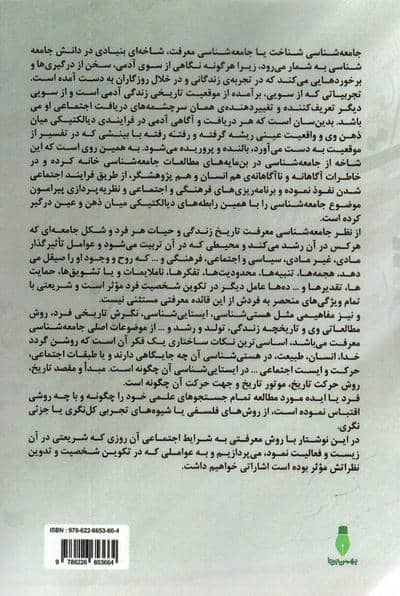 جامعه‌شناسی شناخت یا جامعه‌شناسی معرفت، شاخه‌ای بنیادی در دانش جامعه
شناسی به شمار می‌رود، زیرا هرگونه نگاهی از سوی آدمی، سخن از درگیری‌ها و
برخوردهایی می‌کند که در تجربه‌ی زندگانی و در خلال روزگاران به دست آمده است.
تجربیاتی که از سویی، برآمده از موقعیت تاریخی زندگی آدمی است و از سویی
دیگر تعریف‌کننده و تغییردهنده‌ی همان سرچشمه‌های دریافت اجتماعی او می
باشد. بدین‌سان است که هر دریافت و آگاهی آدمی در فرایندی دیالکتیکی میان
ذهن وی و واقعیت عینی ریشه گرفته و رفته رفته با بینشی که در تفسیر از
موقعیت به دست می‌آورد، بالنده و پرورده می‌شود. به همین روی است که این
شاخه از جامعه‌شناسی در بن‌مایه‌های مطالعات جامعه‌شناسی خانه کرده و در
خاطرات آگاهانه و ناآگاهانه‌ی هم انسان و هم پژوهشگر، از طریق فرایند اجتماعی
شدن نفوذ نموده و برنامه‌ریزی‌های فرهنگی و اجتماعی و نظریه‌پردازی پیرامون
موضوع جامعه‌شناسی را با همین رابطه‌های دیالکتیکی میان ذهن و عین درگیر
کرده است.
از نظر جامعه‌شناسی معرفت تاریخ زندگی و حیات هر فرد و شکل جامعه‌ای که
هرکس در آن رشد می‌کند و محیطی که در آن تربیت می‌شود و عوامل تأثیرگذار
مادی، غیر مادی، سیاسی و اجتماعی، فرهنگی و ... که روح و وجود او را صیقل می
دهد، هجمه‌ها، تنبیه‌ها، محدودیت‌ها، تفکرها، ناملایمات و یا تشویق‌ها، حمایت
ها، تقدیرها و ... ده‌ها عامل دیگر در تکوین شخصیت فرد مؤثر است و شریعتی با
تمام ویژگی‌های منحصر به فردش از این قائده معرفتی مستثنی نیست.
و نیز مفاهیمی مثل هستی‌شناسی، ایستایی‌شناسی، نگرش تاریخی فرد، روش
مطالعاتی وی و تاریخچه زندگی، تولد و رشد و ... از موضوعات اصلی جامعه‌شناسی
معرفت می‌باشد، اساسی‌ترین نکات ساختاری یک فکر آن است که روشن گردد
خدا، انسان، طبیعت، در هستی‌شناسی آن چه جایگاهی دارند و یا طبقات اجتماعی،
حرکت و ایست اجتماعی ... در ایستایی‌شناسی آن چگونه است. مبدأ و مقصد تاریخ،
روش حرکت تاریخ، موتور تاریخ و جهت حرکت آن چگونه است.
فرد یا ایده مورد مطالعه تمام جستجوهای علمی خود را چگونه و با چه روشی
اقتباس نموده است، از روش‌های فلسفی یا شیوه‌های تجربی کل‌نگری یا جزئی
نگری.
در این نوشتار با روش معرفتی به شرایط اجتماعی آن روزی که شریعتی در آن
زیست و فعالیت نمود، می‌پردازیم و به عواملی که در تکوین شخصیت و تدوین
نظراتش مؤثر بوده است اشاراتی خواهیم داشت.
ISBN: 978-622-6653-66-4
9 786226 603664